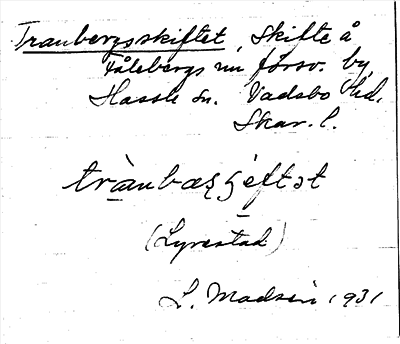 Tranbergsskiftet, Skifte å
Fålebergs nu försv. by,
Hassle sn. Vadsbo hd.
Skar. l.
trànbæʂʃɛftət
(Lyrestad)
L. Madsén 1931